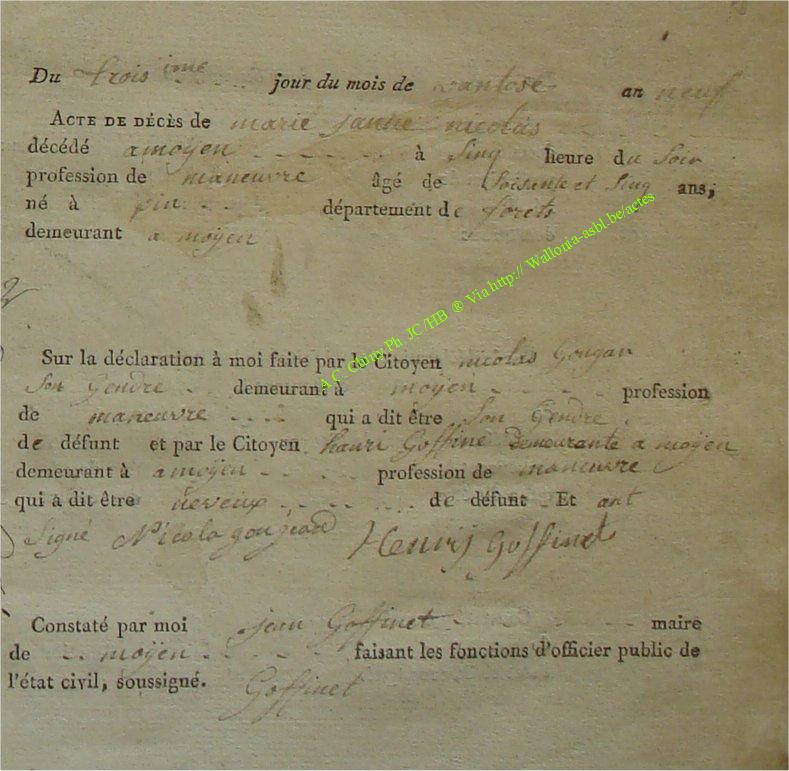 Du troisime jour du mois de vantose an neuf
ACTE DE DÉCÈS de marie janne nicolas
décédé a moÿen à sinq heure du soir
profession de maneuvre âgé de soisente et sinq ans,
né à pin département de forets
demeurant a moÿen
Sur la déclaration à moi faite par le Citoyen nicolas Gougan
son Gendre demeurant à moyen profession
de maneuvre qui a dit être son Gendre
de défunt et par le Citoyen hanri Goffine Demeurante a moÿen
demeurant à a moÿen profession de maneuvre
qui a dit être neveux de défunt Et ont
signé Nicola goujeard Henrÿ Goffinet
Constaté par moi jean Goffinet maire
de moÿen faisant les fonctions d'officier public de
l'état civil, soussigné. Goffinet
A.C. Chiny Ph JC/HB ® Via http:// Wallonia-asbl.be/actes